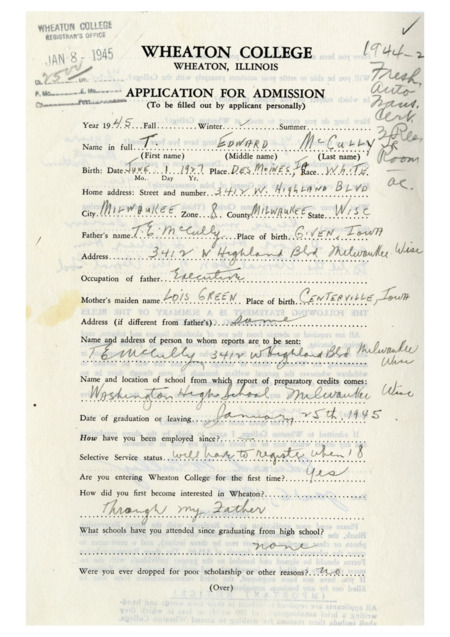 WHEATON COLLEGE
REGISTRAR'S OFFICE
JAN 8 - 1945
WHEATON COLLEGE
WHEATON, ILLINOIS
APPLICATION FOR ADMISSION
(To be filled out by applicant personally)
1944-2
Fresh
Auto
Trans.
Cert.
2 Rec
Room
ac.
Year 1945 Fall Winter Summer
Name in full T. EDWARD McCULLY
(First name) (Middle name) (Last name)
Birth: Date JUNE 1 1927 Place DES MOINES, IA. Race WHITE
Mo. Day Yr.
Home address: Street and number 3412 W. HIGHLAND BLVD
City MILWAUKEE Zone 8 County MILWAUKEE State WISC
Father's name T.E. McCully Place of birth GIVEN, IOWA
Address 3412 W Highland Blvd Milwaukee Wisc
Occupation of father Executive
Mother's maiden name LOIS GREEN Place of birth CENTERVILLE, IOWA
Address (if different from father's) same
Name and address of person to whom reports are to be sent:
T E McCully 3412 W Highland Blvd Milwaukee Wisc
Name and location of school from which report of preparatory credits comes:
Washington High School Milwaukee Wisc
Date of graduation or leaving January 25th 1945
How have you been employed since?
Selective Service status will have to register when 18
Are you entering Wheaton College for the first time? Yes
How did you first become interested in Wheaton?
Through my Father
What schools have you attended since graduating from high school?
none
Were you ever dropped for poor scholarship or other reasons? no
(Over)